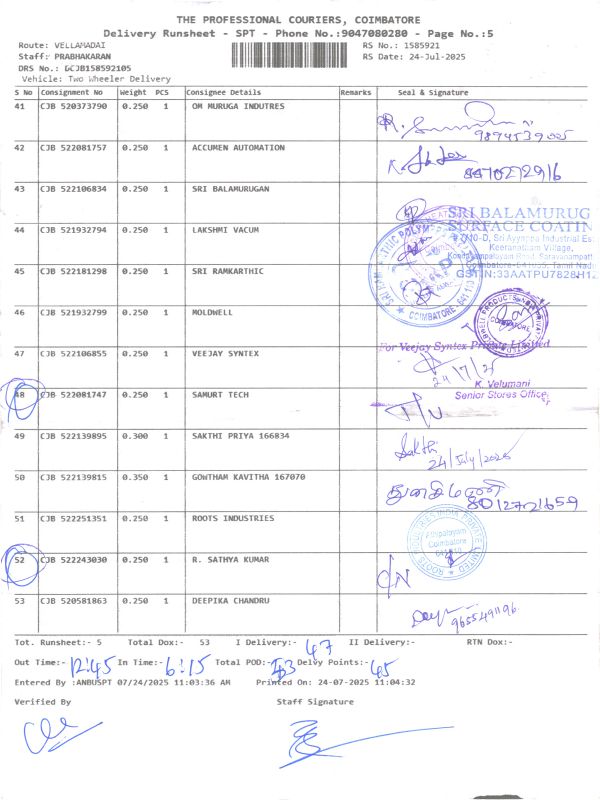 THE PROFESSIONAL COURIERS, COIMBATORE
Delivery Runsheet - SPT - Phone No.:9047080280 - Page No.:5
Route: VELLAMADAI RS No.: 1585921
Staff: PRABHAKARAN RS Date: 24-Jul-2025
DRS No.: DCJB158592105
Vehicle: Two Wheeler Delivery
S No Consignment No Weight PCS Consignee Details Remarks Seal & Signature
41 CJB 520373790 0.250 1 OM MURUGA INDUTRES
42 CJB 522081757 0.250 1 ACCUMEN AUTOMATION
43 CJB 522106834 0.250 1 SRI BALAMURUGAN
SRI BALAMURUG
SURFACE COATIN
Keeranatham Village,
GSTIN:33AATPU7828H1Z
44 CJB 521932794 0.250 1 LAKSHMI VACUM
45 CJB 522181298 0.250 1 SRI RAMKARTHIC
COIMBATORE
46 CJB 521932799 0.250 1 MOLDWELL
COIMBATORE
47 CJB 522106855 0.250 1 VEEJAY SYNTEX
For Veejay Syntex Private Limited
24/7/25
K. Velumani
Senior Stores Officer
48 CJB 522081747 0.250 1 SAMURT TECH
49 CJB 522139895 0.300 1 SAKTHI PRIYA 166834
Sakthi
24/July/2025
50 CJB 522139815 0.350 1 GOWTHAM KAVITHA 167070
8012721659
51 CJB 522251351 0.250 1 ROOTS INDUSTRIES
ROOTS INDUSTRIES INDIA PRIVATE LIMITED
Coimbatore
52 CJB 522243030 0.250 1 R. SATHYA KUMAR
53 CJB 520581863 0.250 1 DEEPIKA CHANDRU
9655491196
Tot. Runsheet:- 5 Total Dox:- 53 I Delivery:- 47 II Delivery:- RTN Dox:-
Out Time:- 12:45 In Time:- 6:15 Total POD:- Delvy Points:- 45
Entered By :ANBUSPT 07/24/2025 11:03:36 AM Printed On: 24-07-2025 11:04:32
Verified By Staff Signature